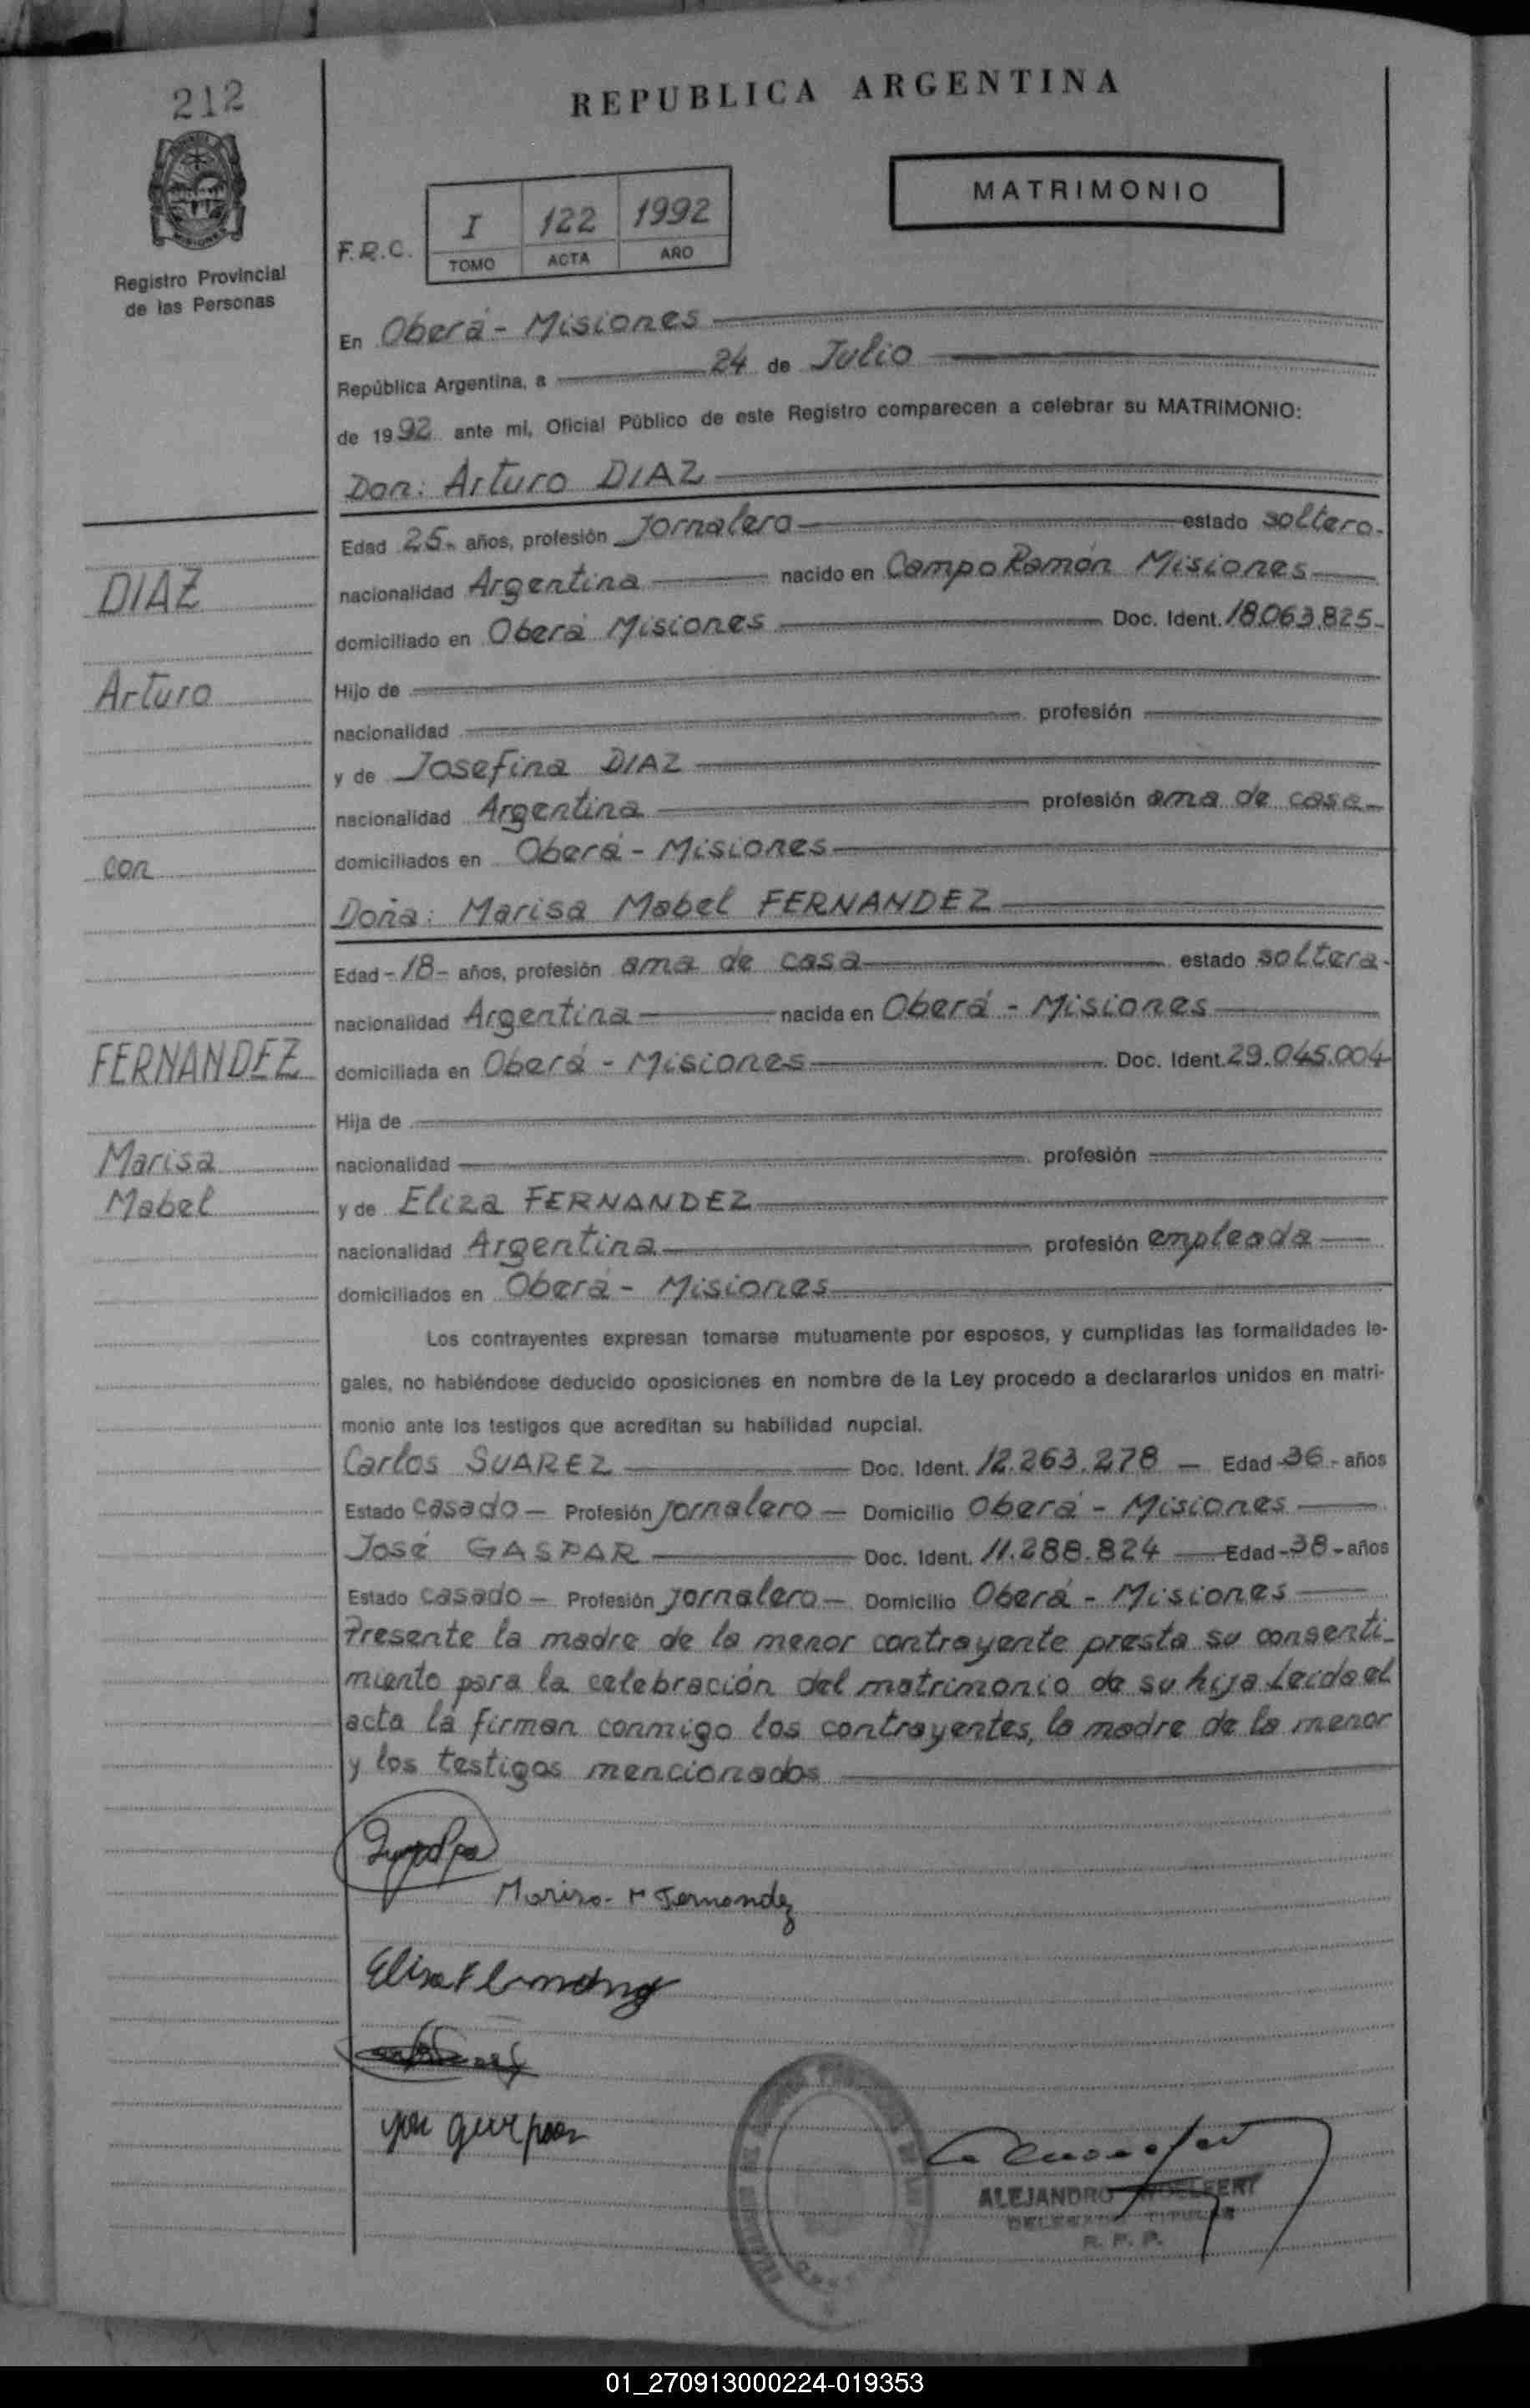 212
REPUBLICA ARGENTINA
MATRIMONIO
Registro Provincial
de las Personas
F.R.C.
I 122 1992
TOMO ACTA AÑO
En Oberá - Misiones
República Argentina, a 24 de Julio
de 1992 ante mí, Oficial Público de este Registro comparecen a celebrar su MATRIMONIO:
Don: Arturo DIAZ
Edad 25- años, profesión Jornalero estado soltero.
nacionalidad Argentina nacido en Campo Ramón Misiones
domiciliado en Oberá Misiones Doc. Ident. 18.063.825-
Hijo de
nacionalidad profesión
y de Josefina DIAZ
nacionalidad Argentina profesión ama de casa
domiciliados en Oberá - Misiones
Doña: Marisa Mabel FERNANDEZ
Edad -18- años, profesión ama de casa estado soltera-
nacionalidad Argentina nacida en Oberá - Misiones
domiciliada en Oberá - Misiones Doc. Ident. 29.045.004
Hija de
nacionalidad profesión
y de Eliza FERNANDEZ
nacionalidad Argentina profesión empleada
domiciliados en Oberá - Misiones
Los contrayentes expresan tomarse mutuamente por esposos, y cumplidas las formalidades le-
gales, no habiéndose deducido oposiciones en nombre de la Ley procedo a declararlos unidos en matri-
monio ante los testigos que acreditan su habilidad nupcial.
Carlos SUAREZ Doc. Ident. 12.263.278 - Edad -36- años
Estado casado - Profesión jornalero - Domicilio Oberá - Misiones
José GASPAR Doc. Ident. 11.288.824 Edad -38- años
Estado casado - Profesión jornalero - Domicilio Oberá - Misiones
Presente la madre de la menor contrayente presta su consenti-
miento para la celebración del matrimonio de su hija Leida el
acta la firman conmigo los contrayentes, la madre de la menor
y los testigos mencionados
DIAZ
Arturo
con
FERNANDEZ
Marisa
Mabel
Marisa - M Fernandez
ALEJANDRO
DELEGADO TITULAR
R. P. P.
01_270913000224-019353